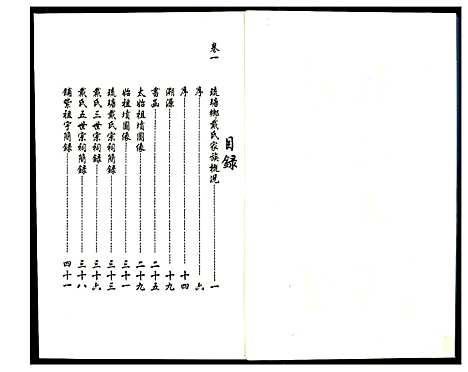 目録
卷一
琉塘鄉戴氏家族概況 一
序 六
序 十四
溯源 十九
書函 二十五
太始祖墳圖俵 二十九
始祖墳圖俵 三十一
琉塘戴氏宗祠簡錄 三十三
戴氏三世宗祠簡錄 三十六
戴氏五世宗祠簡錄 三十八
鋪紫祖宇簡錄 四十一